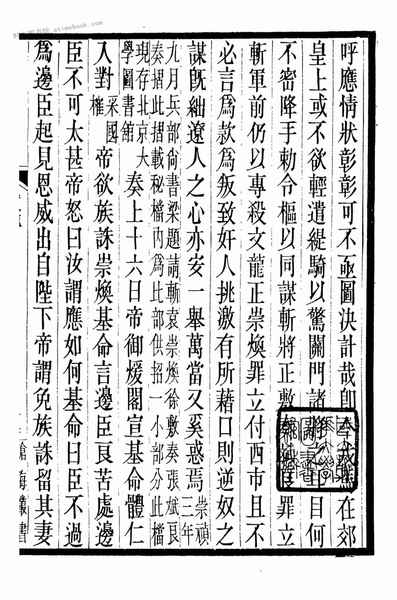 呼應情狀彰彰可不亟圖決計哉即今戎馬在郊
皇上或不欲輕遣緹騎以驚關門諸將之耳目何
不密降手勅令樞以同謀斬將正敷奏
罪
斬軍前仍以專殺文龍正崇煥罪立付西市且不
必言爲款爲叛致奸人挑激有所藉口則逆奴之
謀旣絀遼人之心亦安一舉萬當又奚惑焉崇禎三年
九月兵部尙書梁題請斬袁崇煥徐敷奏張斌良
奏摺此摺載秘檔內爲比部供招一小部分此檔
現存北京大
學圖書館
奏上十六日帝御煖閣宣基命體仁
入對采國榷
帝欲族誅崇煥基命言邊臣艮苦處邊
臣不可太甚帝怒曰汝謂應如何基命曰臣不過
爲邊臣起見恩威出自陛下帝謂免族誅留其妻
滄海叢書